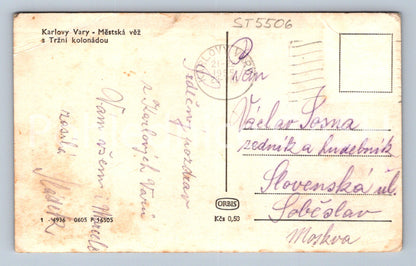 Karlovy Vary - Městská věž
s Tržní kolonádou
ST5506
Srdečný pozdrav
z Karlových Varů
Vám všem
zasílá
Pán
Václav Sosna
zedník a hudebník
Slovenská ul.
Soběslav
Moskva
ORBIS
Kčs 0,50
1 - 4936 0605 P 16505